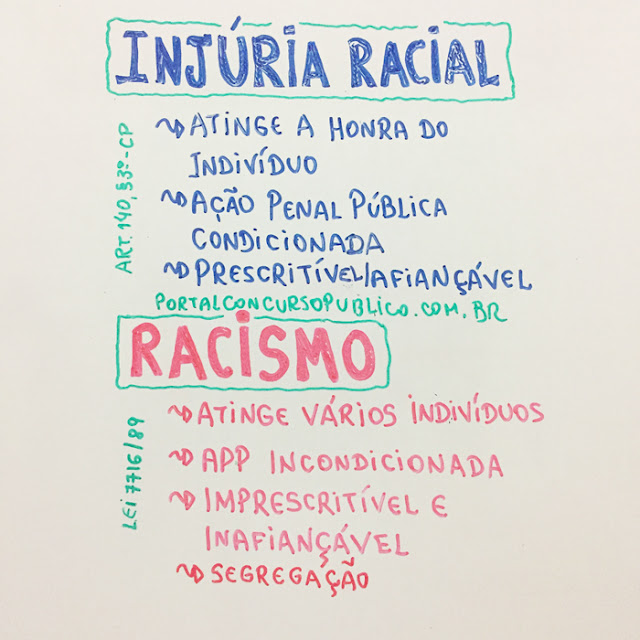 INJÚRIA RACIAL
ART. 140, §3º-CP
ATINGE A HONRA DO
INDIVÍDUO
AÇÃO PENAL PÚBLICA
CONDICIONADA
PRESCRITÍVEL/AFIANÇÁVEL
PORTALCONCURSOPUBLICO.COM.BR
RACISMO
LEI 7716/89
ATINGE VÁRIOS INDIVÍDUOS
APP INCONDICIONADA
IMPRESCRITÍVEL E
INAFIANÇÁVEL
SEGREGAÇÃO